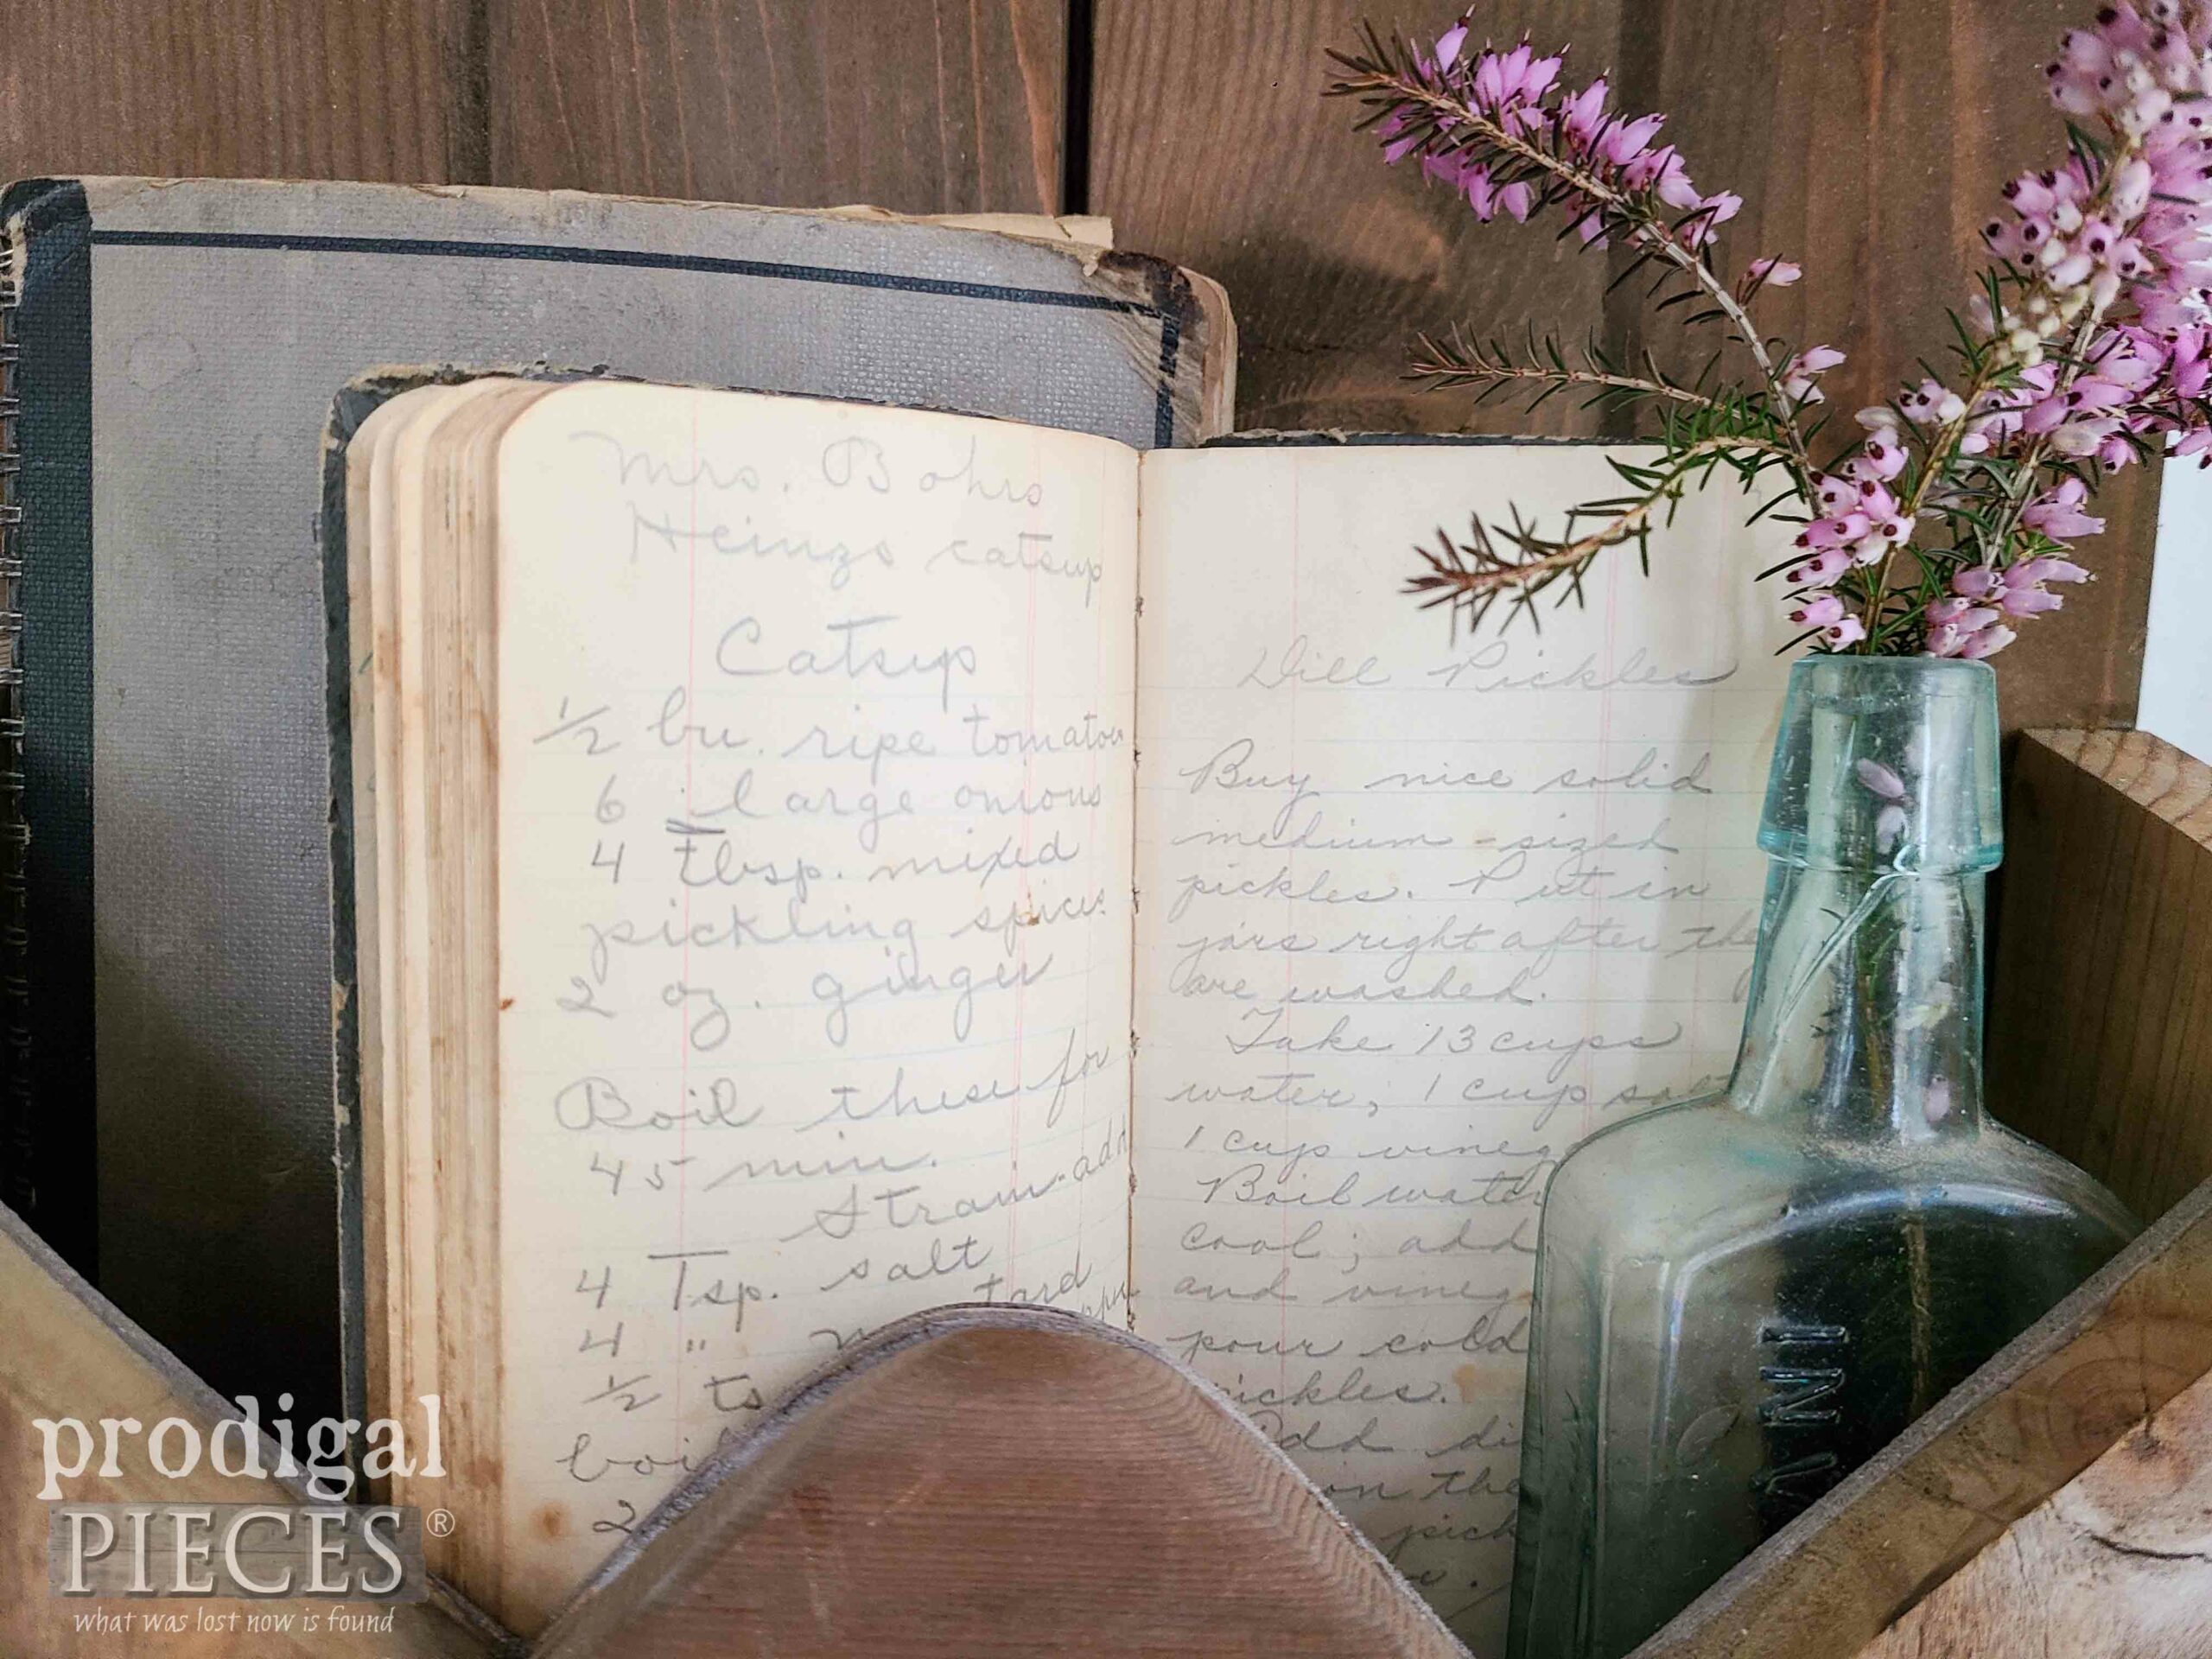 Mrs. Bohrs
Heinzs catsup
Catsup
1/2 bu. ripe tomatoes
6 large onions
4 Tbsp. mixed
pickling spices
2 oz. ginger
Boil these for
45 min.
Strain-add
4 Tsp. salt
4 "
1/2
2
Dill Pickles
Buy nice solid
medium-sized
pickles. Put in
jars right after they
are washed.
Take 13 cups
water, 1 cup
1 cup
Boil
cool; add
and
pour cold
on the
prodigal
PIECES®
what was lost now is found